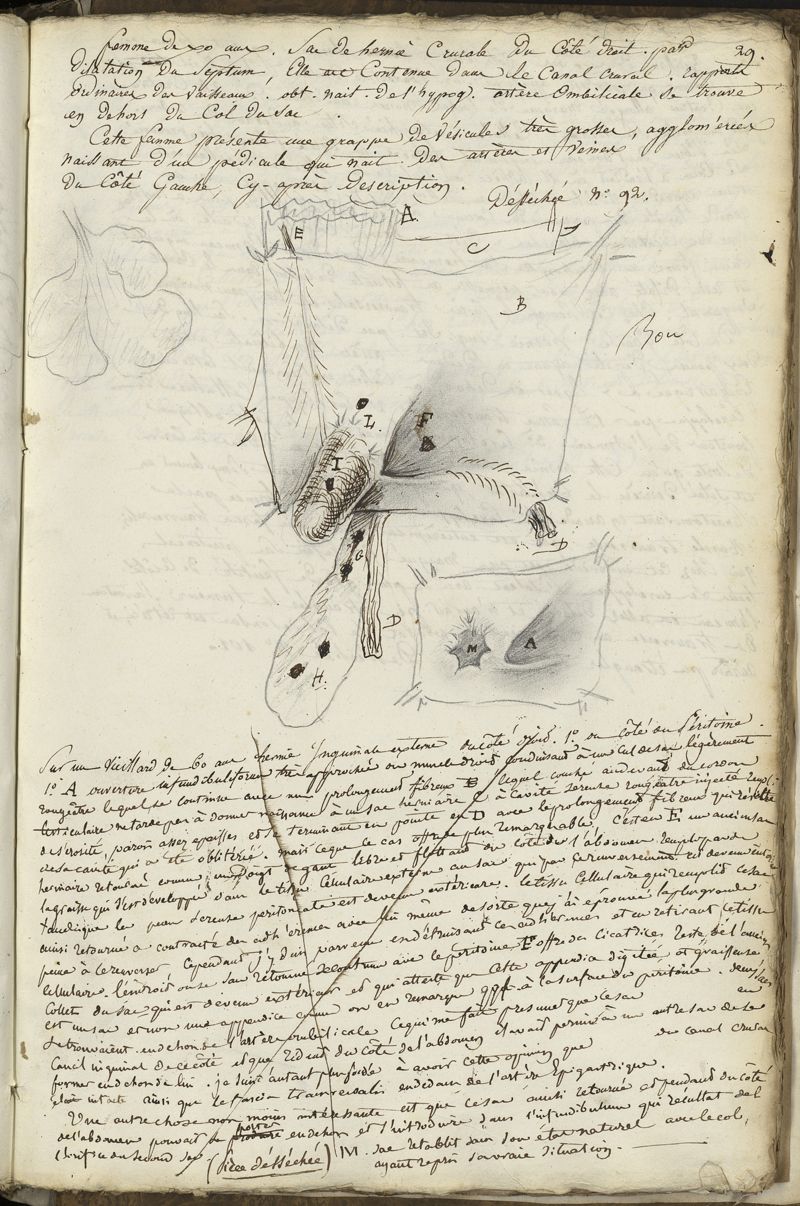 femme de 20 ans. Sac de hernie Crurale du Côté droit. par 29.
dilatation du Septum, Elle est Contenue dans le Canal crural. rapports
ordinaires des vaisseaux. obt. nait de l'hypog. artère ombilicale se trouve
en dehors du Col du sac.
Cette femme présente une grappe de vésicules très grosses, agglomérées
naissant d'un pédicule qui nait des artères et veines
du Côté Gauche, Cy-après description. Désséchée n° 92.
A
E
C
B
Bon
L.
F
I
G
D
D
H.
M
A
Sur un vieillard de 60 ans hernie Inguinale externe du côté droit. 1° du côté du Péritoine.
1° A ouverture infundibuliforme très approchée du muscle droit conduisant à un cul de sac légèrement
rougeâtre lequel se continue avec un prolongement fibreux B lequel couché au devant du cordon
testiculaire ne tarde pas à donner naissance à un sac herniaire C à cavité séreuse rougeâtre injectée rempli
de sérosité, parois assez épaisses et se terminant en pointe en D avec le prolongement fibreux qui
de sa cavité qui a été oblitérée. mais ce que ce cas offre de plus remarquable, c'est en E un ancien sac
herniaire retourné comme un doigt de gant libre et flottant du côté de l'abdomen rempli par de
la graisse qui s'est développée dans le tissu cellulaire externe au sac qui par ce renversement est devenu interne
tandis que la peau séreuse péritonéale est devenue extérieure. le tissu cellulaire qui remplit ce sac
ainsi retourné a contracté des adhérences avec lui même de sorte que j'ai éprouvé la plus grande
peine à le renverser. Cependant j'y suis parvenu en détruisant ces adhérences et en retirant ce tissu
cellulaire. l'endroit où ce sac retourné se continue avec le péritoine F offre des cicatrices reste de l'ancien
collet du sac qui est devenu extérieur et qui atteste que cette appendice digitée et graisseuse
est un sac et non une appendice comme on en remarque qqf. à la surface du péritoine. deux sacs
se trouvaient en dehors de l'artère ombilicale ce qui me fait présumer que ce sac en
canal inguinal de ce côté et que réduit du côté de l'abdomen il avait permis à un autre sac de se
former en dehors de lui. je suis d'autant plus fondé à avoir cette opinion que du canal crural
étaient intacts ainsi que le fascia transversalis en dedans de l'artère épigastrique.
Une autre chose non moins intéressante est que ce sac aussi retourné et pendant du côté
de l'abdomen pouvait se porter en dehors et s'introduire dans l'infundibulum qui résultat del
l'orifice du second sac (pièce désséchée) M. sac rétabli dans son état naturel avec le col,
ayant repris sa vraie situation.